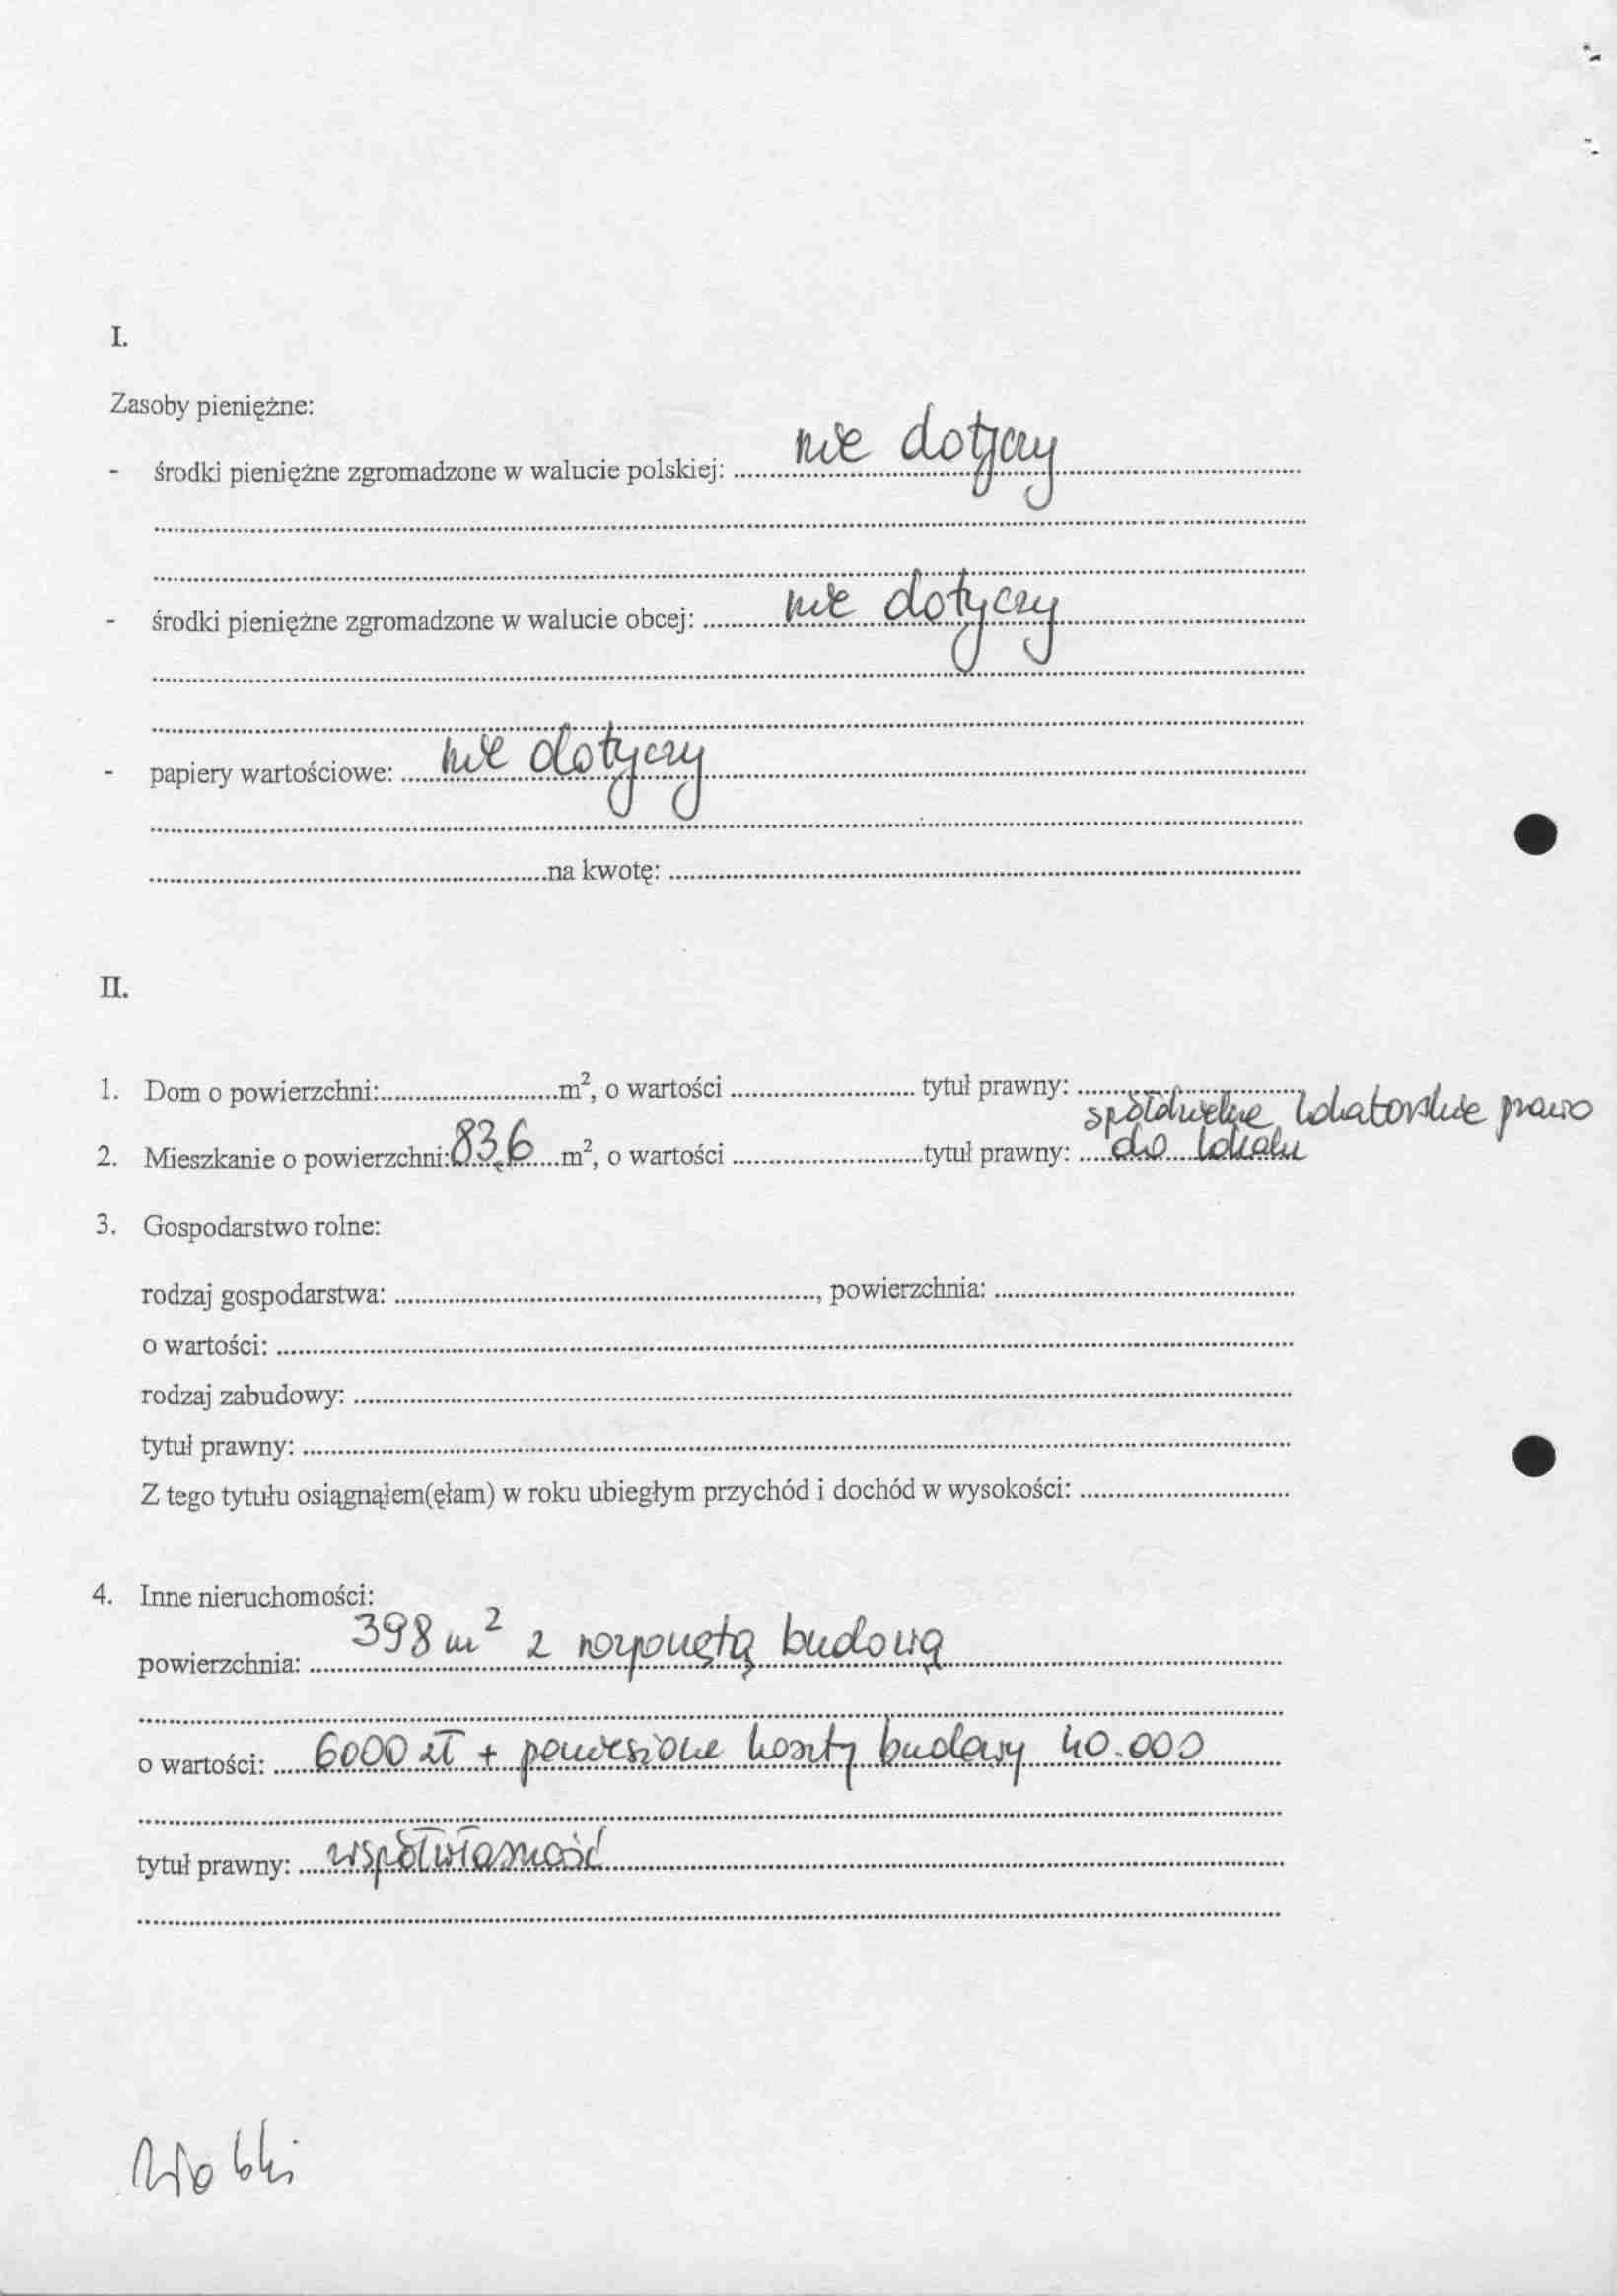 I.
Zasoby pieniężne:
- środki pieniężne zgromadzone w walucie polskiej: nie dotyczy
- środki pieniężne zgromadzone w walucie obcej: nie dotyczy
- papiery wartościowe: nie dotyczy
na kwotę:
II.
1. Dom o powierzchni: m², o wartości tytuł prawny:
spółdzielcze lokatorskie prawo
2. Mieszkanie o powierzchni: 83,6 m², o wartości tytuł prawny: do lokalu
3. Gospodarstwo rolne:
rodzaj gospodarstwa: , powierzchnia:
o wartości:
rodzaj zabudowy:
tytuł prawny:
Z tego tytułu osiągnąłem(ęłam) w roku ubiegłym przychód i dochód w wysokości:
4. Inne nieruchomości:
powierzchnia: 398 m² z rozpoczętą budową
o wartości: 6000 zł + poniesione koszty budowy 40.000
tytuł prawny: współwłasność